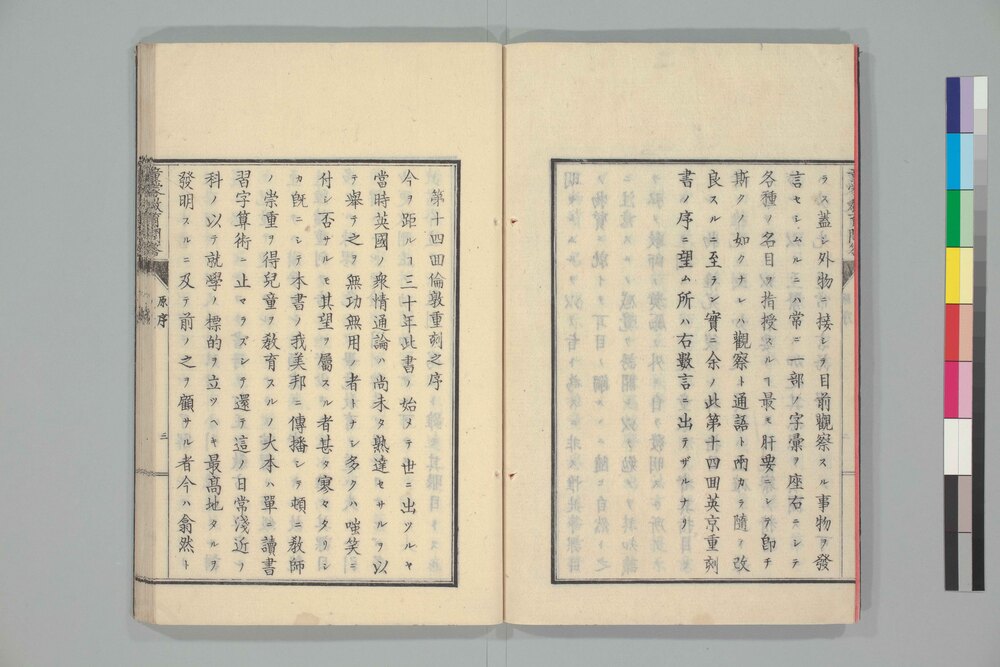 ラス蓋シ外物ニ接シヲ目前觀察スル事物ヲ發
言セシムルニハ常ニ一部ノ字彙ヲ座右ニシテ
各種ノ名目ヲ指授スルヿ最モ肝要ニシテ卽チ
斯クノ如クナレハ觀察ト通語ト兩カラ隨テ改
良スルニ至ラン實ニ余ノ此第十四囬英京重刻
書ノ序ニ望ム所ハ右數言ニ出テザルナリ
第十四囬倫敦重刻之序
今ヲ距ルヿ三十年此書ノ始メテ世ニ出ツルヤ
當時英國ノ衆情通論ハ尚未タ熟達セサルヲ以
テ舉テ之ヲ無功無用ノ者トナシ多クハ嗤笑ニ
付シ否サルモ其望ヲ屬スル者甚タ寥々タリシ
カ旣ニシテ本書ノ我美邦ニ傳播シヲ頓ニ敎師
ノ崇重ヲ得兒童ヲ敎育スルノ大本ハ單ニ讀書
習字算術ニ止マラズシテ還テ這ノ日常淺近ノ
科ノ以テ就學ノ標的ヲ立ツヘキ最高地タルヲ
發明スルニ及テ前ノ之ヲ顧サル者今ハ翕然ト
原序
三